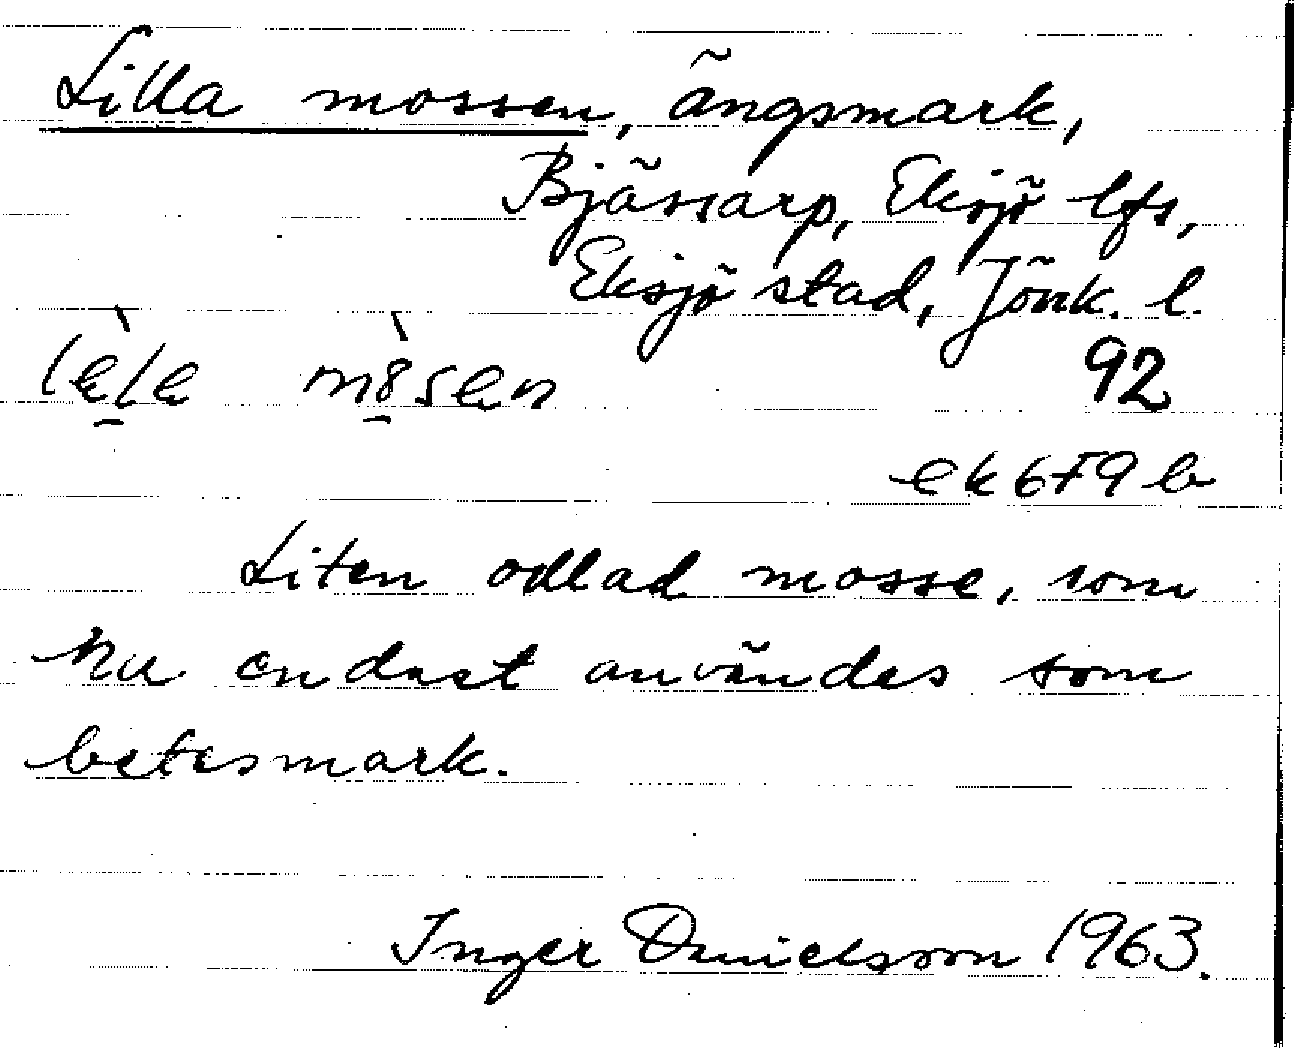 Lilla mossen, ängsmark,
Bjässarp, Eksjö lfs,
Eksjö stad, Jönk. l.
92
ek 6F9b
Liten odlad mosse, som
nu endast användes som
betesmark.
Inger Danielsson 1963.